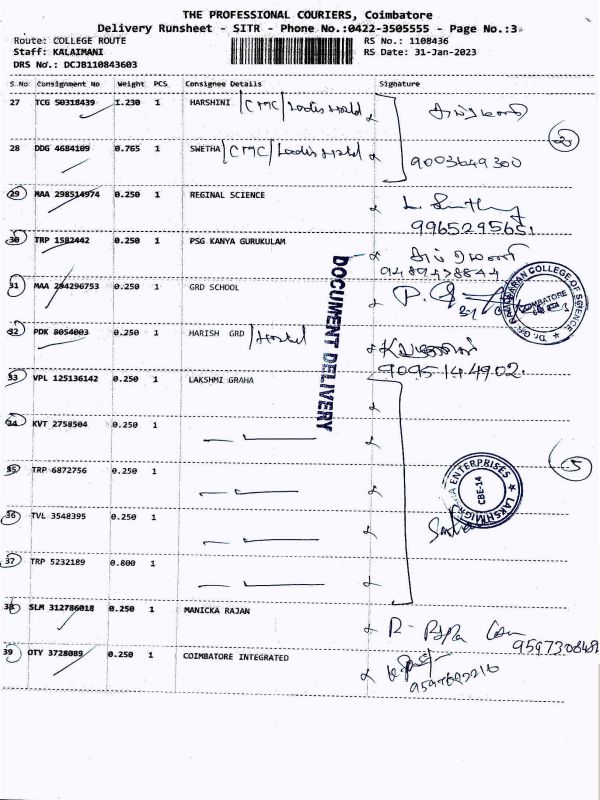 THE PROFESSIONAL COURIERS, Coimbatore
Delivery Runsheet - SITR - Phone No.:0422-3505555 - Page No.:3
Route: COLLEGE ROUTE
RS No.: 1108436
Staff: KALAIMANI
RS Date: 31-Jan-2023
DRS No.: DCJB110843603
S.No Consignment No Weight PCS Consignee Details Signature
27 TCG 50318439 1.230 1 HARSHINI / CMC / Ladis Hstd
28 DDG 4684109 0.765 1 SWETHA / CMC / Ladis Hstd
9003649300
2
29 MAA 298514974 0.250 1 REGINAL SCIENCE
9965295651
30 TRP 1582442 0.250 1 PSG KANYA GURUKULAM
9489478844
31 MAA 294296753 0.250 1 GRD SCHOOL
COLLEGE OF SCIENCE
COIMBATORE
32 PDK 8054003 0.250 1 HARISH GRD / Hostel
9095144902
DOCUMENT DELIVERY
33 VPL 125136142 0.250 1 LAKSHMI GRAHA
34 KVT 2758504 0.250 1
35 TRP 6872756 0.250 1
5
LAKSHMIGRAHA ENTERPRISES
CBE-14
36 TVL 3548395 0.250 1
37 TRP 5232189 0.800 1
38 SLM 312786018 0.250 1 MANICKA RAJAN
39 OTY 3728089 0.250 1 COIMBATORE INTEGRATED